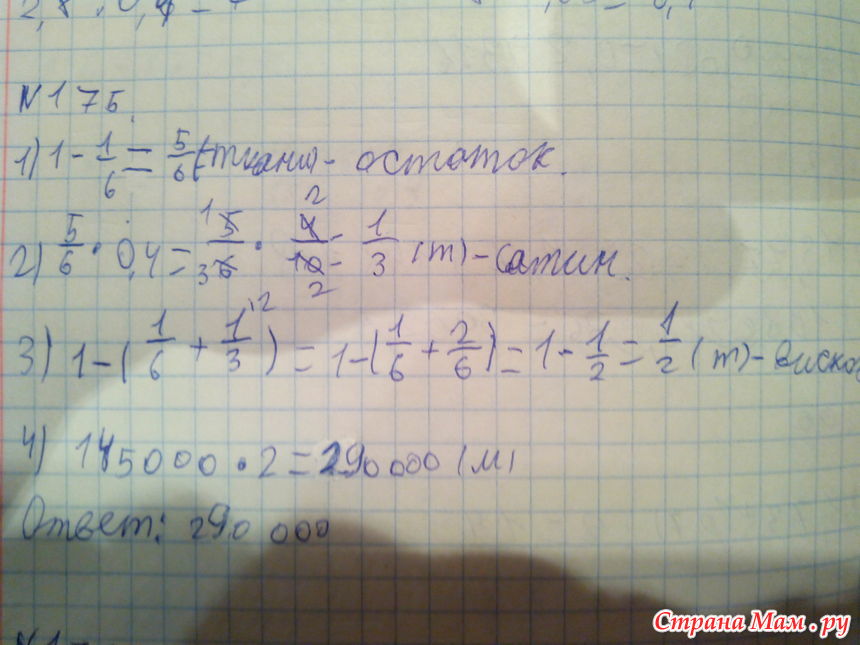 N 175.
1) 1 - 1/6 = 5/6 (ткани) - остаток.
2) 5/6 · 0,4 = 5/6 · 4/10 = 1/3 (т) - сатин.
3) 1 - (1/6 + 1/3) = 1 - (1/6 + 2/6) = 1 - 1/2 = 1/2 (т) - виско
4) 145000 · 2 = 290000 (м)
Ответ: 290 000
Страна Мам.ру